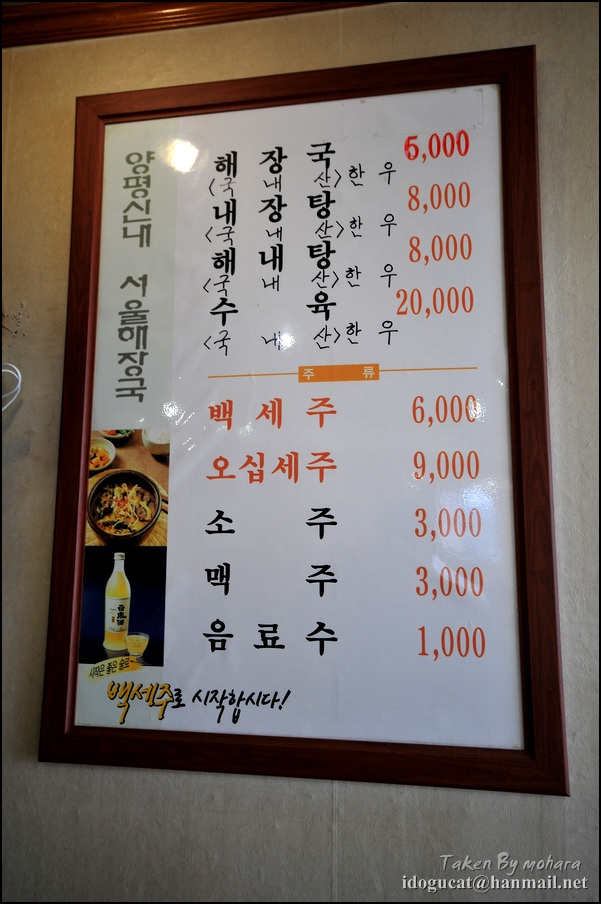 양평신내 서울해장국
해장국 6,000
<국내산>한우
내장탕 8,000
<국내산>한우
해내탕 8,000
<국내산>한우
수육 20,000
<국내산>한우
주류
백세주 6,000
오십세주 9,000
소주 3,000
맥주 3,000
음료수 1,000
시작은 좋은 술로~
백세주로 시작합시다!
Taken By mohara
idogucat@hanmail.net